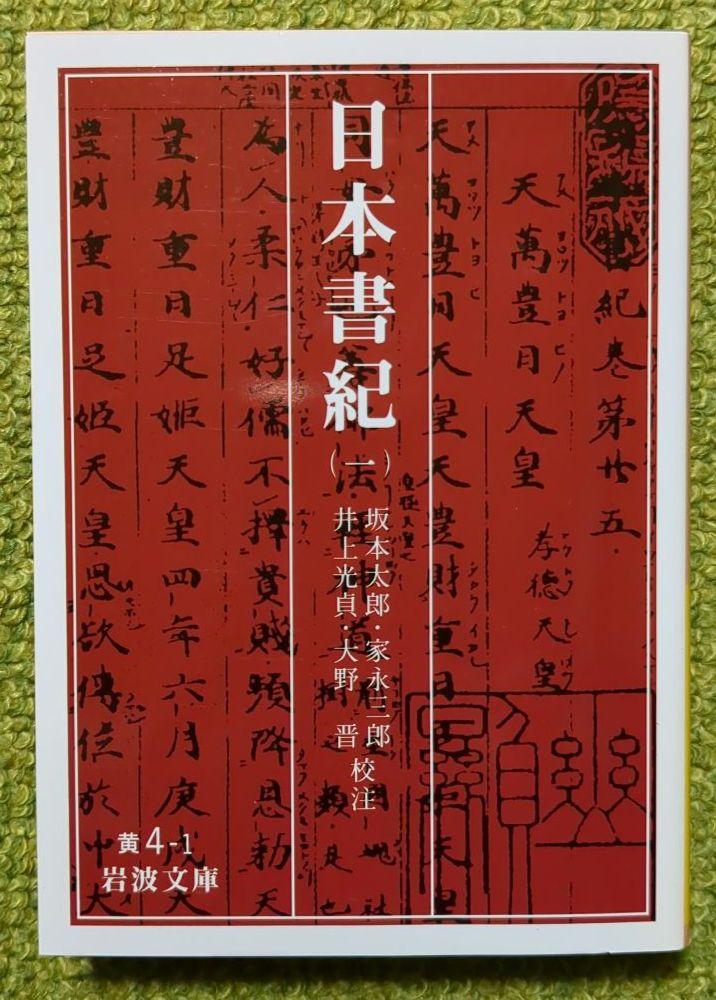 日本書紀
(一)
坂本太郎・家永三郎
井上光貞・大野 晋 校注
黄4-1
岩波文庫
書紀卷第廿五
天萬豊日天皇 孝徳天皇
天萬豊日天皇天豊財重日
為人柔仁好儒不擇貴賤頻降恩勅天
豊財重日足姫天皇四年六月庚戌天
豊財重日足姫天皇思欲傳位於中大